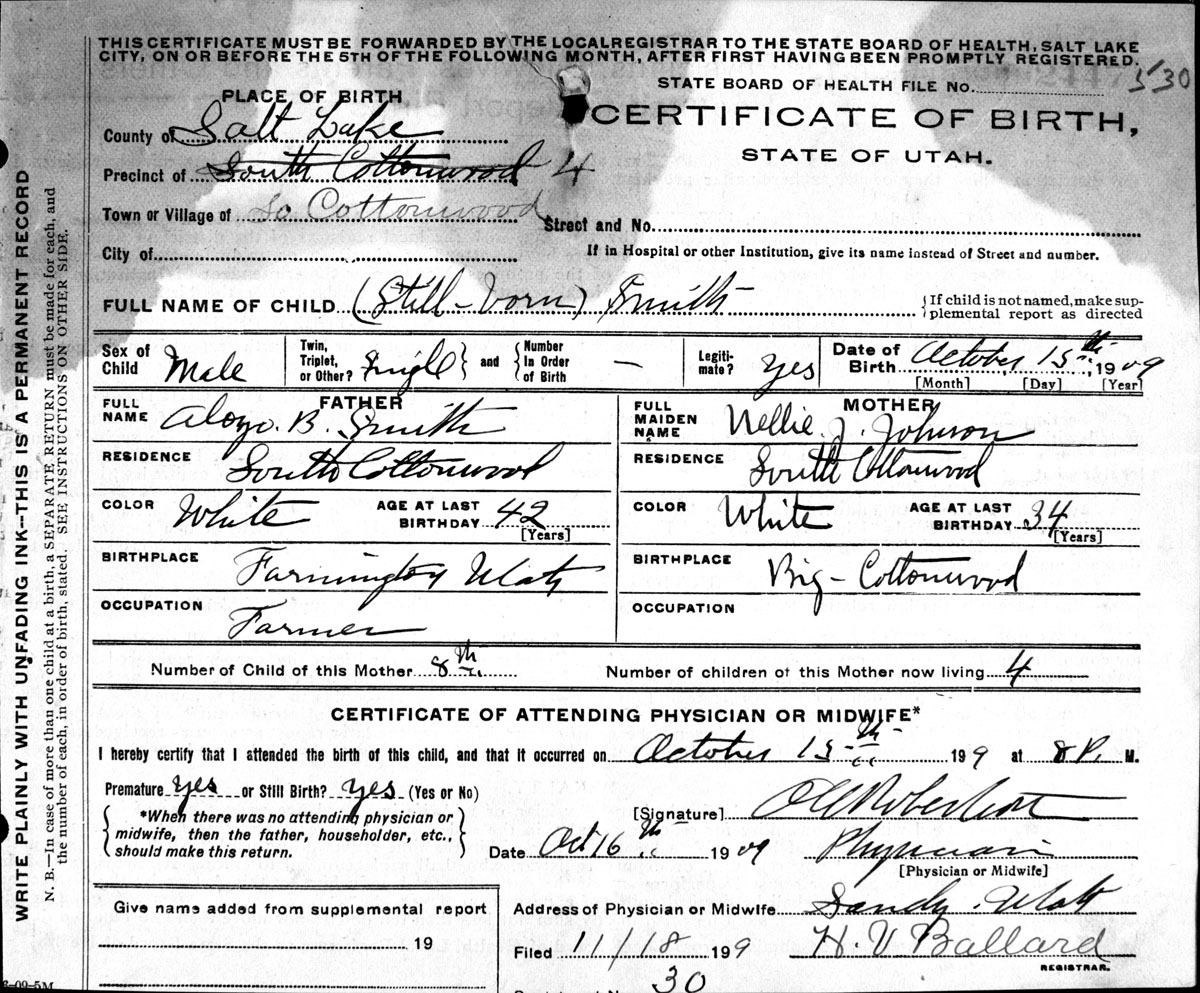 THIS CERTIFICATE MUST BE FORWARDED BY THE LOCAL REGISTRAR TO THE STATE BOARD OF HEALTH, SALT LAKE
CITY, ON OR BEFORE THE 5TH OF THE FOLLOWING MONTH, AFTER FIRST HAVING BEEN PROMPTLY REGISTERED.
STATE BOARD OF HEALTH FILE NO. 530
PLACE OF BIRTH
CERTIFICATE OF BIRTH,
STATE OF UTAH.
County of Salt Lake
Precinct of South Cottonwood 4
Town or Village of So Cottonwood Street and No.
City of
If in Hospital or other Institution, give its name instead of Street and number.
FULL NAME OF CHILD (Still-born) Smith
If child is not named, make sup-
plemental report as directed
Sex of Child Male
Twin, Triplet, or Other? Single and Number In Order of Birth —
Legiti-mate? Yes
Date of Birth October 15th, 1909
[Month] [Day] [Year]
FATHER
FULL NAME B. Smith
RESIDENCE South Cottonwood
COLOR White AGE AT LAST BIRTHDAY 42
[Years]
BIRTHPLACE Farmington Utah
OCCUPATION Farmer
MOTHER
FULL MAIDEN NAME Nellie J. Johnson
RESIDENCE South Cottonwood
COLOR White AGE AT LAST BIRTHDAY 34
[Years]
BIRTHPLACE Big-Cottonwood
OCCUPATION
Number of Child of this Mother 8th Number of children of this Mother now living 4
CERTIFICATE OF ATTENDING PHYSICIAN OR MIDWIFE*
I hereby certify that I attended the birth of this child, and that it occurred on October 15th 1909 at 8 P. M.
Premature yes or Still Birth? yes (Yes or No)
*When there was no attending physician or
midwife, then the father, householder, etc.,
should make this return.
[Signature]
Date Oct 16th 1909 Physician
[Physician or Midwife]
Give name added from supplemental report
19
Address of Physician or Midwife Sandy Utah
Filed 11/18 1909 H. V Ballard
REGISTRAR.
30
WRITE PLAINLY WITH UNFADING INK—THIS IS A PERMANENT RECORD
N. B.—In case of more than one child at a birth, a SEPARATE RETURN must be made for each, and
the number of each, in order of birth, stated. SEE INSTRUCTIONS ON OTHER SIDE.